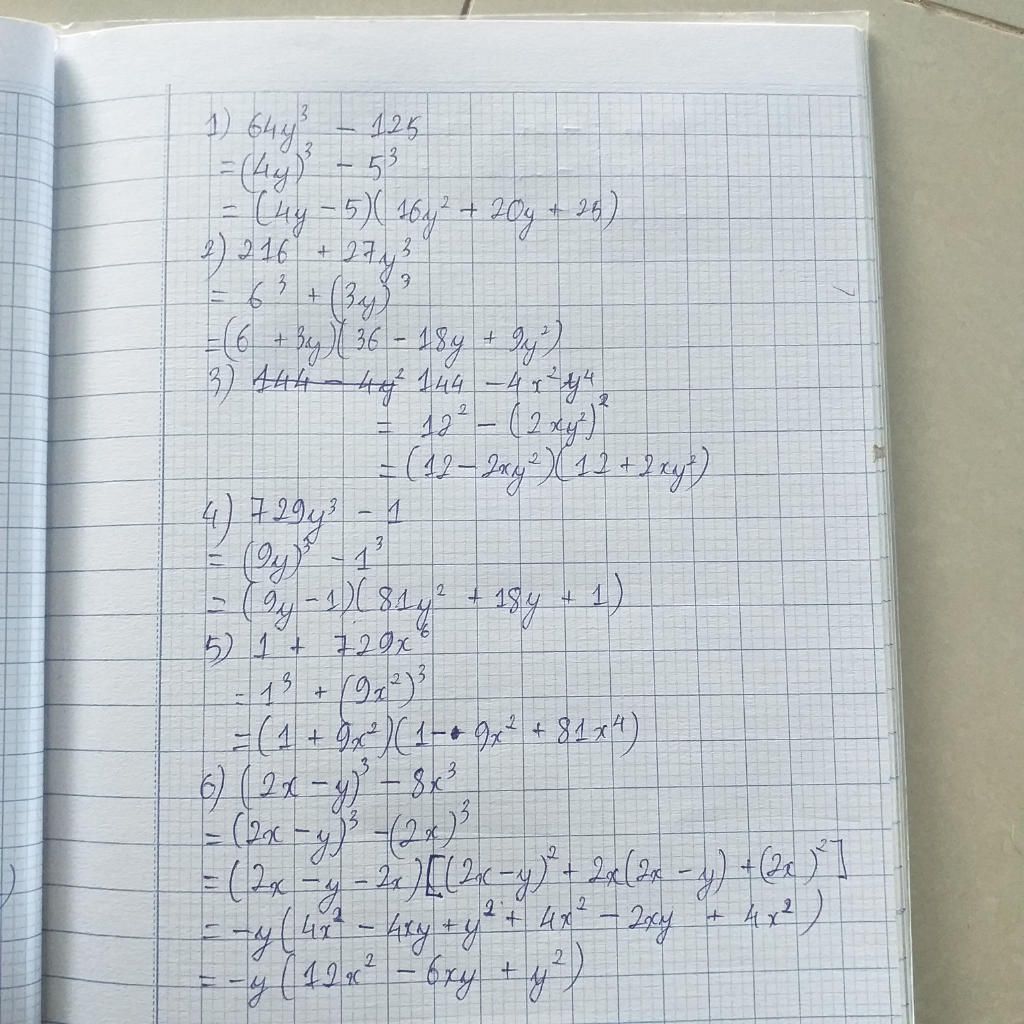 1) 64y³ - 125
= (4y)³ - 5³
= (4y - 5)(16y² + 20y + 25)
2) 216 + 27y³
= 6³ + (3y)³
= (6 + 3y)(36 - 18y + 9y²)
3) 144 - 4y² 144 - 4x²y⁴
= 12² - (2xy²)²
= (12 - 2xy²)(12 + 2xy²)
4) 729y³ - 1
= (9y)³ - 1³
= (9y - 1)(81y² + 18y + 1)
5) 1 + 729x⁶
= 1³ + (9x²)³
= (1 + 9x²)(1 - 9x² + 81x⁴)
6) (2x - y)³ - 8x³
= (2x - y)³ - (2x)³
= (2x - y - 2x)[(2x - y)² + 2x(2x - y) + (2x)²]
= -y(4x² - 4xy + y² + 4x² - 2xy + 4x²)
= -y(12x² - 6xy + y²)